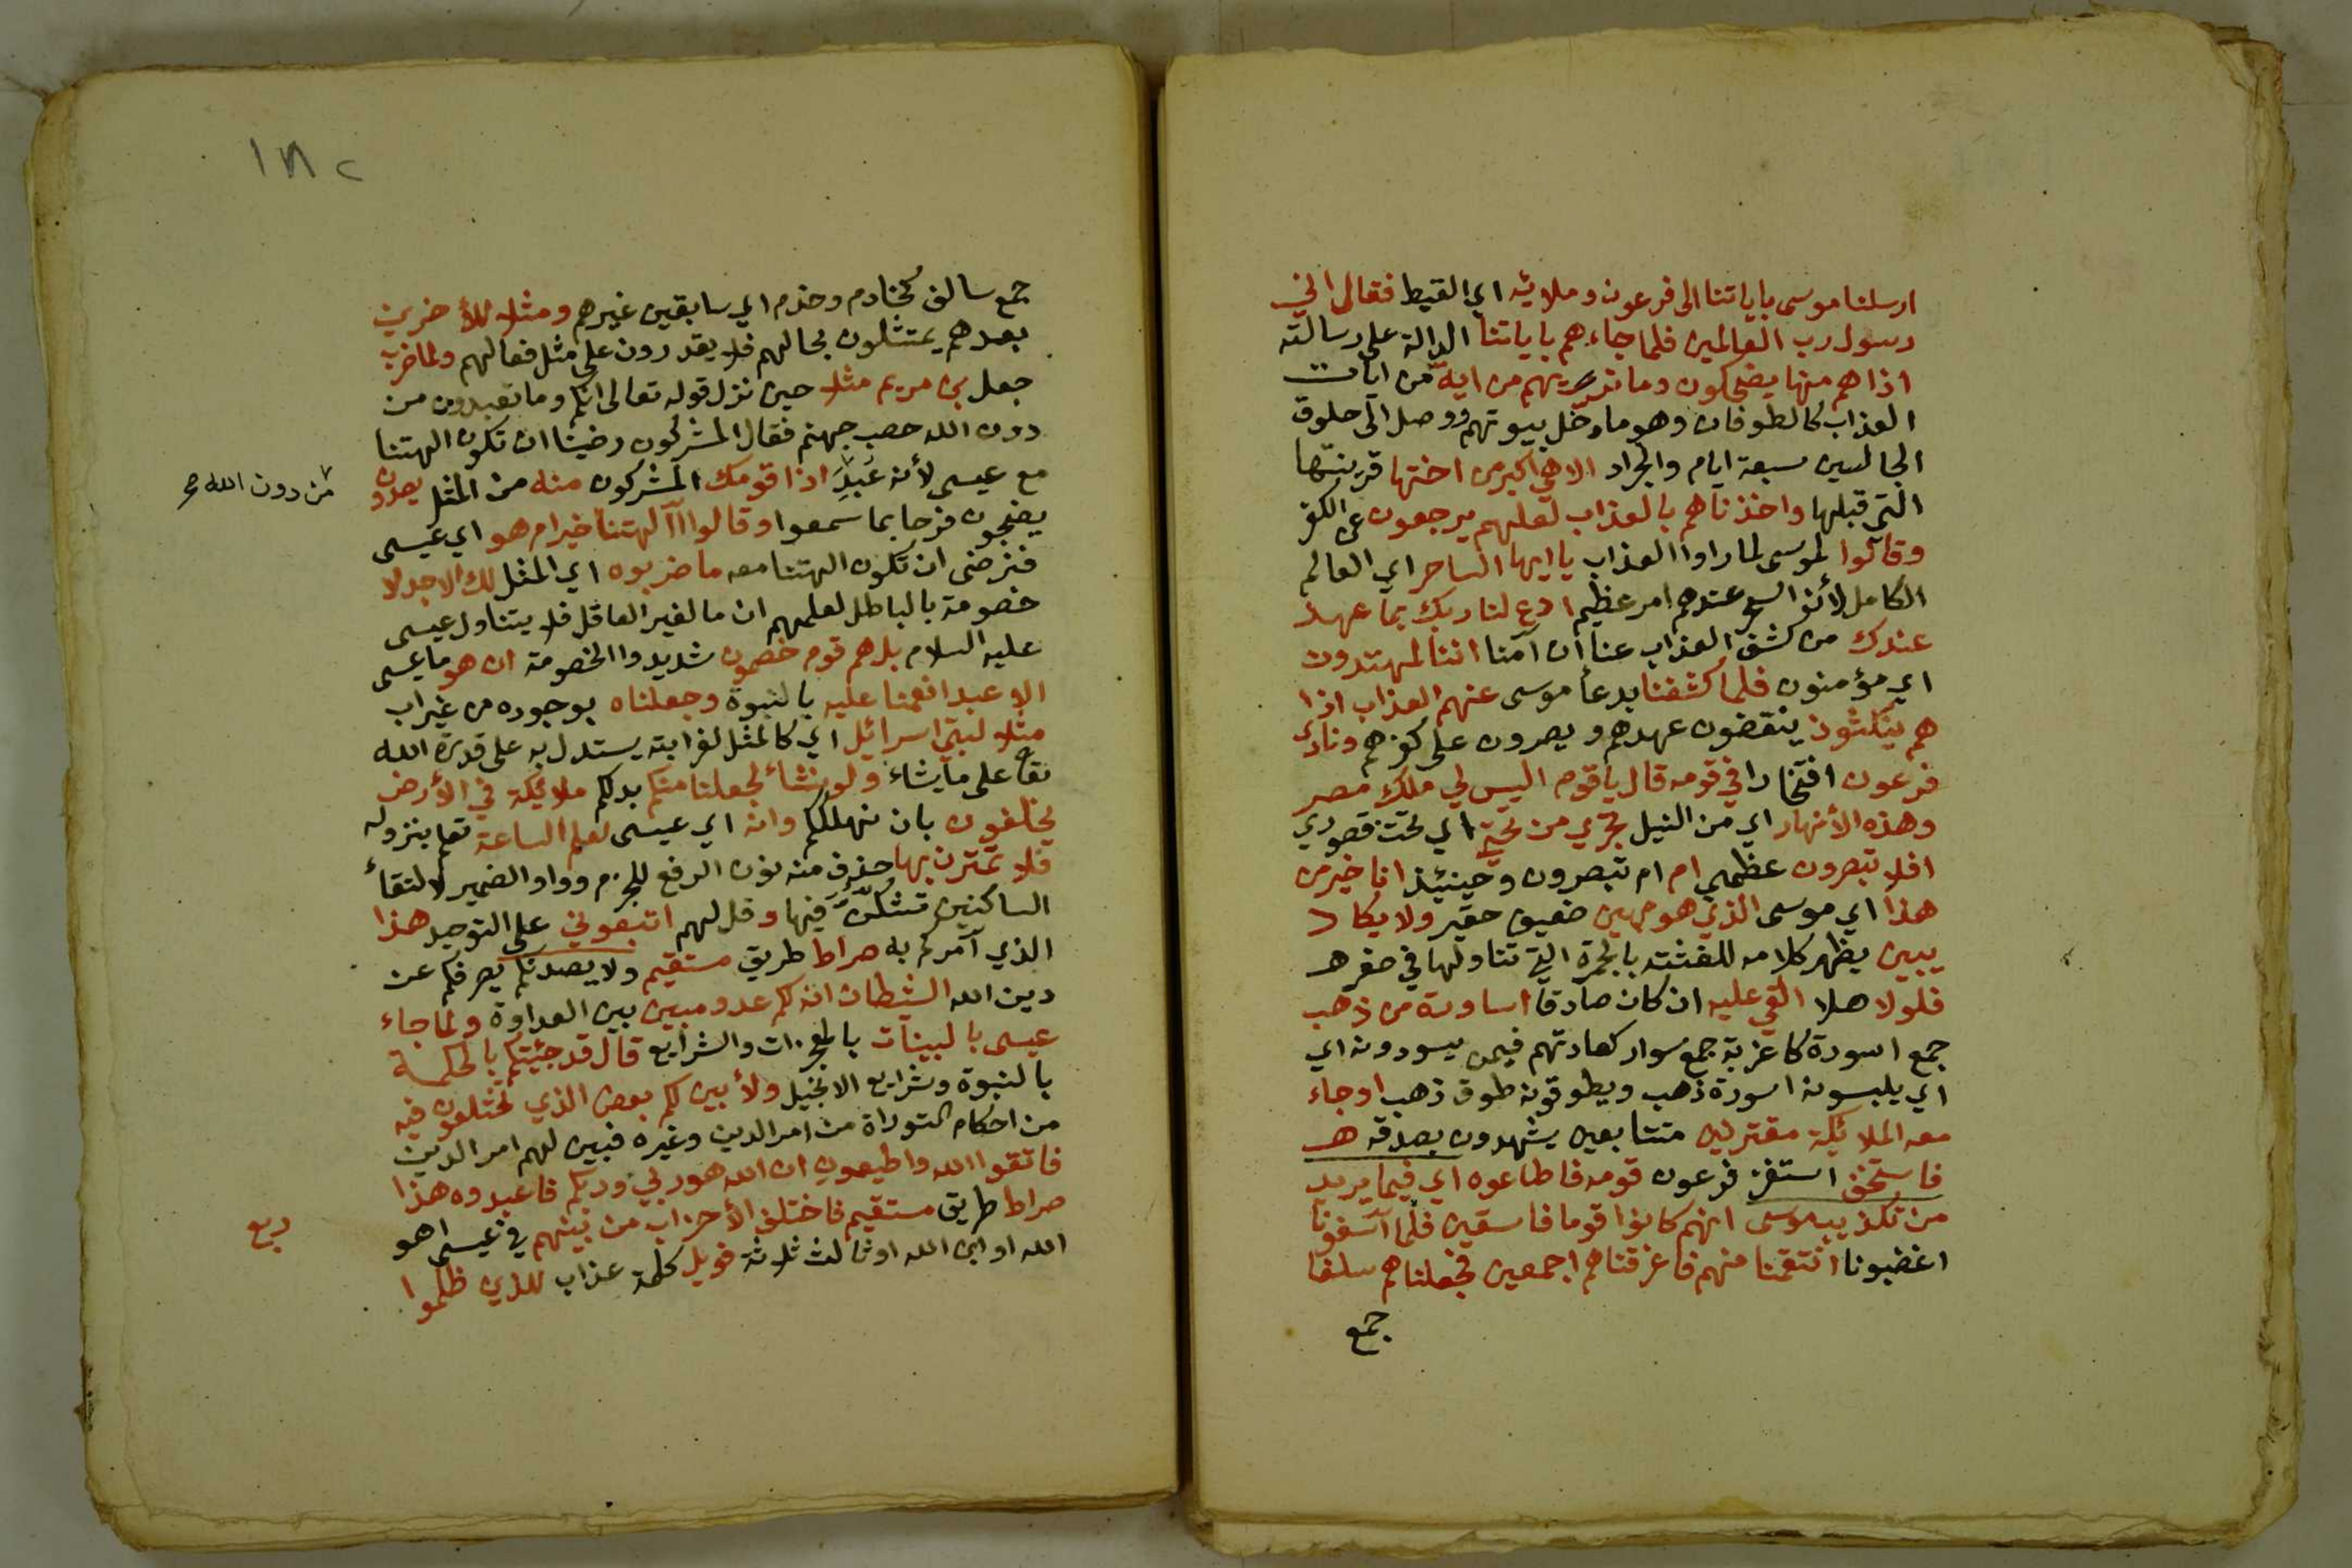 ارسلنا موسى باياتنا الى فرعون وملائه اي القبط فقال اني
رسول رب العالمين فلما جاءهم باياتنا الدالة على رسالته
اذا هم منها يضحكون وما نريهم من اية من ايات
العذاب كالطوفان وهو ماء دخل بيوتهم ووصل الى حلوق
الجالسين سبعة ايام والجراد الا هي اكبر من اختها قرينتها
التي قبلها واخذناهم بالعذاب لعلهم يرجعون عن الكفر
وقالوا لموسى لما راوا العذاب يا ايها الساحر اي العالم
الكامل لأن السحر عندهم امر عظيم ادع لنا ربك بما عهد
عندك من كشف العذاب عنا ان آمنا اننا لمهتدون
اي مؤمنون فلما كشفنا بدعأ موسى عنهم العذاب اذا
هم ينكثون ينقضون عهدهم ويصرون على كفرهم ونادى
فرعون افتخارا في قومه قال يا قوم اليس لي ملك مصر
وهذه الأنهار اي من النيل تجري من تحتي اي تحت قصوري
افلا تبصرون عظمتي ام ام تبصرون وحينئذ انا خير من
هذا اي موسى الذي هو مهين ضعيف حقير ولا يكاد
يبين يظهر كلامه للغثته بالجمرة التي تناولها في صغره
فلولا هلا القي عليه ان كان صادقا اساورة من ذهب
جمع اسورة كاغربة جمع سوار كعادتهم فيمن يسودونه اي
اي يلبسونه اسورة ذهب ويطوقونه طوق ذهب او جاء
معه الملائكة مقترنين متتابعين يشهدون بصدقه هـ
فاستخف استفز فرعون قومه فاطاعوه اي فيما يريد
من تكذيب موسى انهم كانوا قوما فاسقين فلما آسفونا
اغضبونا انتقمنا منهم فاغرقناهم اجمعين فجعلناهم سلفا
جمع
١٨٢
جمع سالف كخادم وخدم اي سابقين غيرهم ومثلا للأخرين
بعدهم يتمثلون بحالهم فلا يقدرون على مثل فعالهم ولما ضرب
جعل بن مريم مثلا حين نزل قوله تعالى انكم وما تعبدون من
دون الله حصب جهنم فقال المشركون رضينا ان تكون الهتنا
مع عيسى لأنه عُبِدَ اذا قومك المشركون منه من المثل يصدون
من دون الله صح
يضجون فرحا بما سمعوا وقالوا آآلهتنا خير ام هو اي عيسى
فنرضى ان تكون الهتنا معه ما ضربوه اي المثل لك الا جدلا
خصومة بالباطل لعلمهم ان ما لغير العاقل فلا يتناول عيسى
عليه السلام بل هم قوم خصمون شديدوا الخصومة ان هو ما عيسى
الا عبد انعمنا عليه بالنبوة وجعلناه بوجوده من غير اب
مثلا لبني اسرائل اي كالمثل لغرابته يستدل به على قدرة الله
تعا على ما يشاء ولو نشأ لجعلنا منكم بدلكم ملائكة في الأرض
يخلفون بان نهلككم وانه اي عيسى لعلم الساعة تعلم بنزوله
فلا تمترن بها حذف منه نون الرفع للجزم وواو الضمير لالتقأ
الساكنين تشكّنّ فيها وقل لهم اتبعوني على التوحيد هذا
الذي آمركم به صراط طريق مستقيم ولا يصدنكم يصرفكم عن
دين الله الشيطان انه لكم عدو مبين بين العداوة ولما جاء
عيسى بالبينات بالمعجزات والشرايع قال قد جئتكم بالحكمة
بالنبوة وشرايع الانجيل ولأبين لكم بعض الذي تختلفون فيه
من احكام التوراة من امر الدين وغيره فبين لهم امر الدين
فاتقوا الله واطيعون ان الله هو ربي وربكم فاعبدوه هذا
صراط طريق مستقيم فاختلف الأحزاب من بينهم في عيسى اهو
ربع
الله او ابن الله او ثالث ثلاثة فويل كلمة عذاب للذين ظلموا